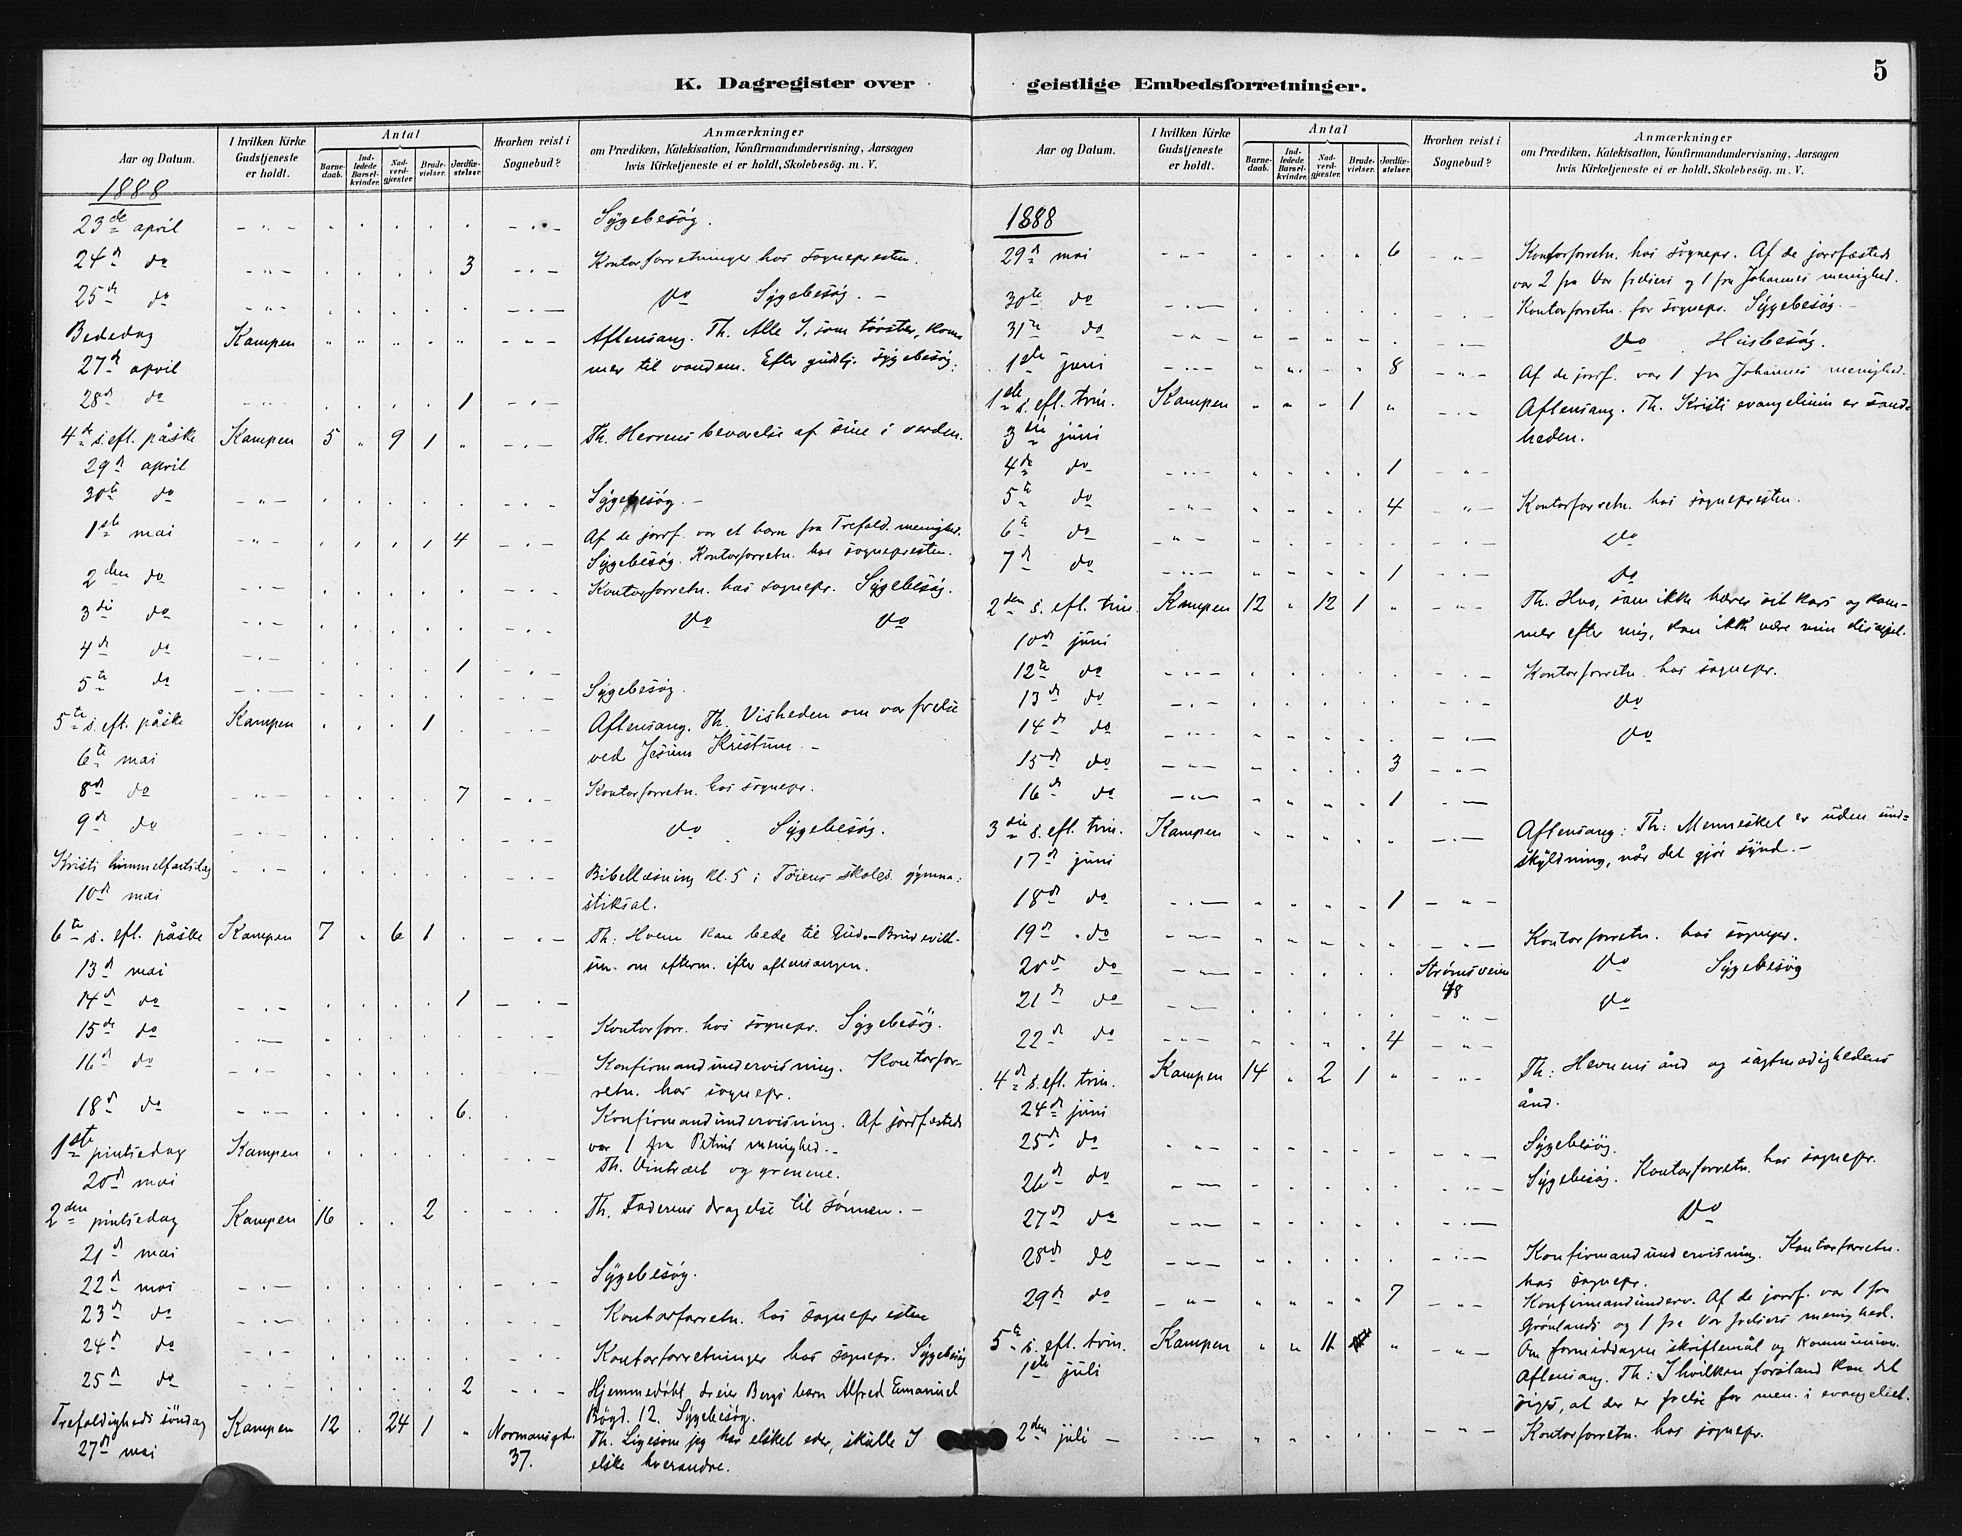 K. Dagregister over geistlige Embedsforretninger.
5
Aar og Datum.
I hvilken Kirke Gudstjeneste er holdt.
Antal
Barne-daab.
Ind-ledede Barsel-kvinder.
Nad-verd-gjæster.
Brude-vielser.
Jordfæ-stelser.
Hvorhen reist i Sognebud?
Anmærkninger
om Prædiken, Katekisation, Konfirmandundervisning, Aarsagen
hvis Kirketjeneste ei er holdt, Skolebesög. m. V.
1888
23de april - " - . . . . . - . - Sygebesög.
24d do - " - . . . . 3 - . - Kontorforretninger hos sognepresten.
25de do - " - . . . . . - . - do Sygebesög. -
Bededag Kampen " " " " " - " - Aftensang. Th. Alle I, som törster, kom-
27d april mer til vandene. Efter gudstj. sygebesög.
28d do - " - . . . . 1 - . -
4de s. eft. påske Kampen 5 " 9 1 " - . - Th. Herrens bevarelse af sine i verden.
29d april
30te do - " - . . . . . - . - Sygebesög. -
1ste mai - " - . . . . 4 - . - Af de jordf. var et barn fra Trefold. menighed.
Sygebesög. Kontorforretn. hos sognepresten.
2den do - . - . . . . . - . - Kontorforretn. hos sognepr. Sygebesög.
3die do - . - . . . . . - . - do do
4d do - . - . . . . 1
5te do - . - . . . . . - . - Sygebesög.
5te s. eft. påske Kampen . . . 1 . - . - Aftensang. Th. Visheden om vor frelse
6te mai ved Jesum Kristum. -
8d do - " - . . . . 7 - . - Kontorforretn. hos sognepr.
9d do - . - . . . . . - . - do Sygebesög.
Kristi himmelfartsdag - . - . . . . . - . - Bibellæsning kl. 5 i Töiens skoles gymna-
10d mai stiksal.
6te s. eft. påske Kampen 7 . 6 1 . - . - Th: Hvem kan bede til Gud. - Brudeviel-
13d mai sen om efterm. efter aftensangen.
14d do - . - . . . . 1 - . -
15de do - . - . . . . . Kontorforr. hos sognepr. Sygebesög.
16d do - . - . . . . . - . - Konfirmandundervisning. Kontorfor-
retn. hos sognepr.
18d do - " - . . . . 6. . Konfirmandundervisning. Af jordfæstede
var 1 fra Petrus menighed. -
1ste pintsedag Kampen . . . . . - . - Th. Vintræet og grenene.
20d mai
2den pintsedag Kampen 16 . . 2 . - . - Th. Faderens dragelse til sönnen. -
21d mai
22d mai - . - . . . . . - . - Sygebesög.
23d do - . - . . . . . - . - Kontorforretn. hos sognepresten
24d do - . - . . . . . - . - Kontorforretninger hos sognepr. Sygebesög
25d do - . - . . . . 2 - . - Hjemmedöbt dreier Bergs barn Alfred Emanuel
Bögd. 12. Sygebesög.
Trefoldigheds söndag Kampen 12 . 24 1 " Normansgt. 37. Th. Ligesom jeg har elsket eder, skulle I
27d mai elske hverandre.
Aar og Datum.
I hvilken Kirke Gudstjeneste er holdt.
Antal
Barne-daab.
Ind-ledede Barsel-kvinder.
Nad-verd-gjæster.
Brude-vielser.
Jordfæ-stelser.
Hvorhen reist i Sognebud?
Anmærkninger
om Prædiken, Katekisation, Konfirmandundervisning, Aarsagen
hvis Kirketjeneste ei er holdt, Skolebesög. m. V.
1888
29d mai - " - . . . . 6 - " - Kontorforretn. hos sognepr. Af de jordfæstede
var 2 fra Vor frelsers og 1 fra Johannes menighed.
30te do - . - . . . . . - . - Kontorforretn. for sognepr. Sygebesög. -
31te do - " - . . . . . - . - do Husbesög.
1ste juni - . - . . . . 8 - " - Af de jordf. var 1 fra Johannes menighed.
1ste s. eft. trin. Kampen " " " 1 " - . - Aftensang. Th. Kristi evangelium er sand-
3die juni heden.
4de do - " - . . . . 1 - " -
5te do - " - . . . . 4 - " - Kontorforretn. hos sognepresten.
6te do - " - . . . . . - . - do
7d do - " - . . . . 1 - . - do
2den s. eft. trin. Kampen 12 " 12 1 " - " - Th. Hvo, som ikke bærer sit kors og kom-
10d juni mer efter mig, kan ikke være min discipel.
12te do - " - . . . . . - . - Kontorforretn. hos sognepr.
13d do - . - . . . . . - " - do
14d do - . - . . . . . - . - do
15d do - " - . . . . 3 - " -
16d do - " - . . . . 1 - . -
3die s. eft. trin. Kampen " " " " " - . - Aftensang: Th: Mennesket er uden und-
17d juni skyldning, når det gjör synd. -
18d do - . - . . . . 1 - " -
19d do - . - . . . . . - " - Kontorforretn. hos sognepr.
20d do - " - . . . . . Strömsveien 48 do Sygebesög
21d do - " - . . . . . - " - do
22d do - " - . . . . 4 - " -
4d s. eft. trin. Kampen 14 " 2 1 " - " - Th: Hevnens ånd og sagtmodighedens
24d juni ånd.
25d do - " - . . . . . - " - Sygebesög.
26d do - " - . . . . . - " - Sygebesög. Kontorforretn. hos sognepr.
27d do - " - . . . . . - . - do
28de do - " - . . . . . - . - Konfirmandundervisning. Kontorforretn.
hos sognepr.
29d do - " - . . . . 7 - " - Konfirmandunderv. Af de jordf. var 1 fra
Grönlands og 1 fra Vor frelsers menighed.
5te s. eft. trin. Kampen " " 11 " - " - Om formiddagen skriftemål og kommunion.
1ste juli Aftensang. Th: I hvilken forstand kan det
siges, at der er frelse for men. i evangeliet.
2den juli - - " - . . . . . - " - Kontorforretn. hos sognepr.